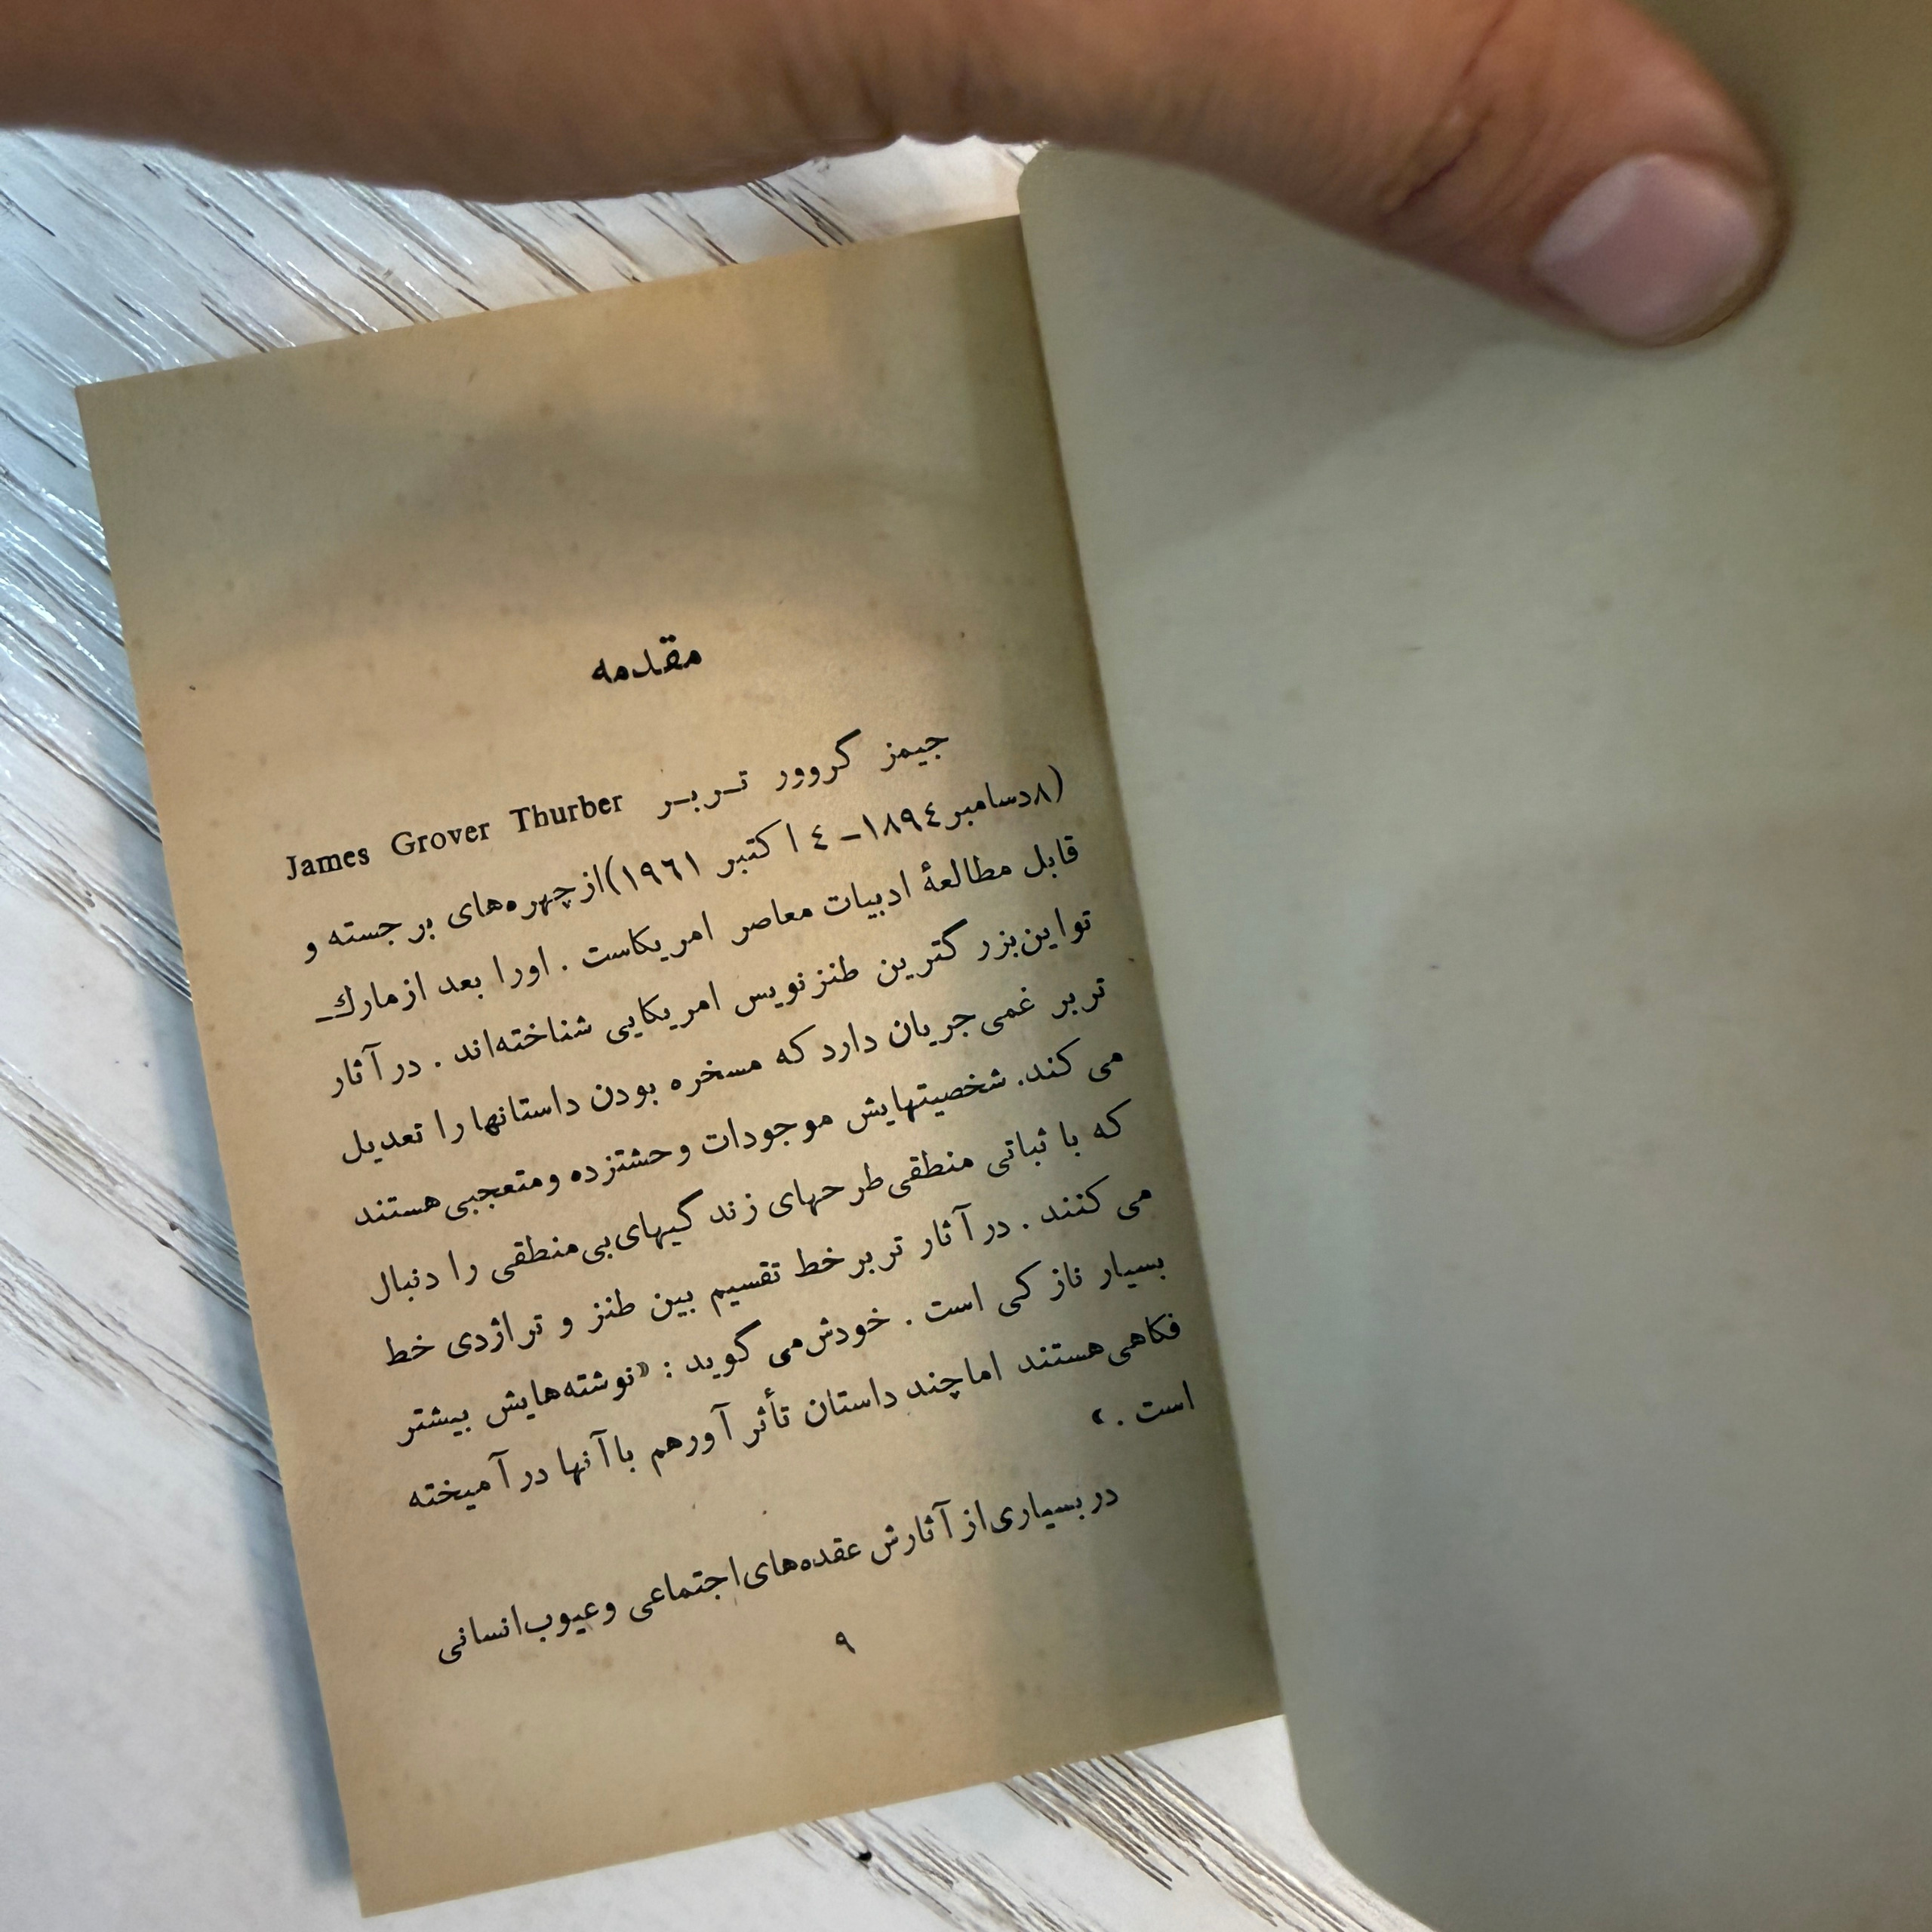 مقدمه
جیمز گروور تـربـر James Grover Thurber
(۸دسامبر۱۸۹٤ـ ٤ اکتبر ۱۹٦۱)ازچهره‌های برجسته و
قابل مطالعهٔ ادبیات معاصر امریکاست . اورا بعد ازمارك‌ـ
تواین‌بزرگترین طنزنویس امریکایی شناخته‌اند . درآثار
تربر غمی‌جریان دارد که مسخره بودن داستانها را تعدیل
می‌کند. شخصیتهایش موجودات وحشتزده ومتعجبی‌هستند
که با ثباتی منطقی‌طرحهای زندگیهای‌بی‌منطقی را دنبال
می‌کنند . درآثار تربرخط تقسیم بین طنز و تراژدی خط
بسیار نازکی است . خودش‌می‌گوید : «نوشته‌هایش بیشتر
فکاهی‌هستند اماچند داستان تأثرآورهم باآنها درآمیخته
است .»
دربسیاری‌از آثارش عقده‌های‌اجتماعی وعیوب‌انسانی
۹